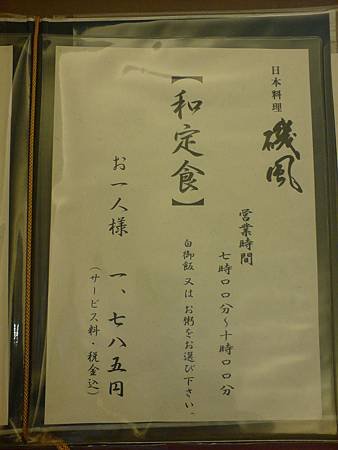 日本料理
磯風
営業時間
七時〇〇分～十時〇〇分
【和定食】
白御飯又はお粥をお選び下さい。
お一人様 一、七八五円
（サービス料・税金込）